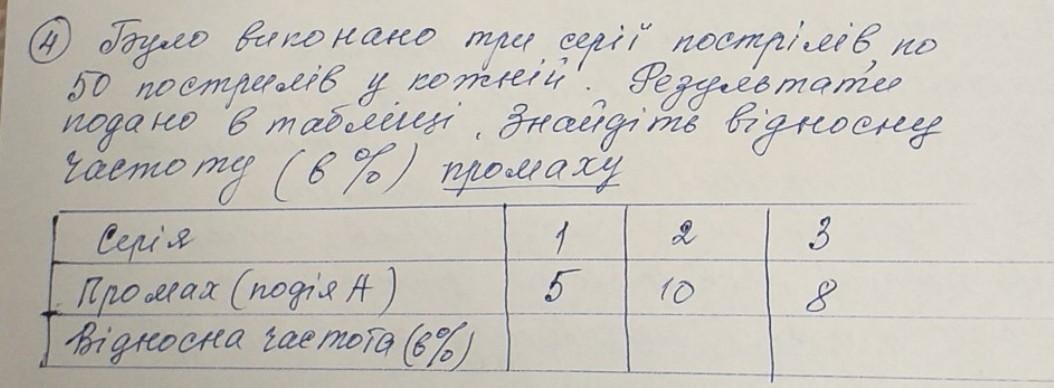 ④ Було виконано три серії пострілів по
50 пострилів у кожній. Результати
подано в таблиці. Знайдіть відносну
частоту (в %) промаху
Серія 1 2 3
Промах (подія А) 5 10 8
Відносна частота (в%)